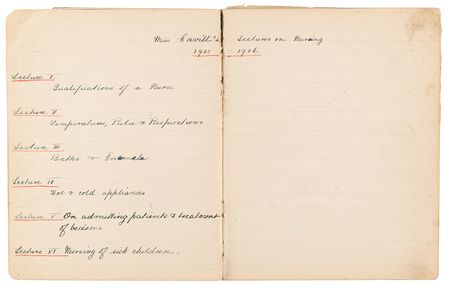 Miss Cavell's Lectures on Nursing
1905 - 1906.
Lecture I.
Qualifications of a Nurse
Lecture II
Temperature, Pulse & Respirations
Lecture III
Baths & Enemata
Lecture IV
Hot & cold appliances
Lecture V On admitting patients & treatment
of bedsores
Lecture VI Nursing of sick children.